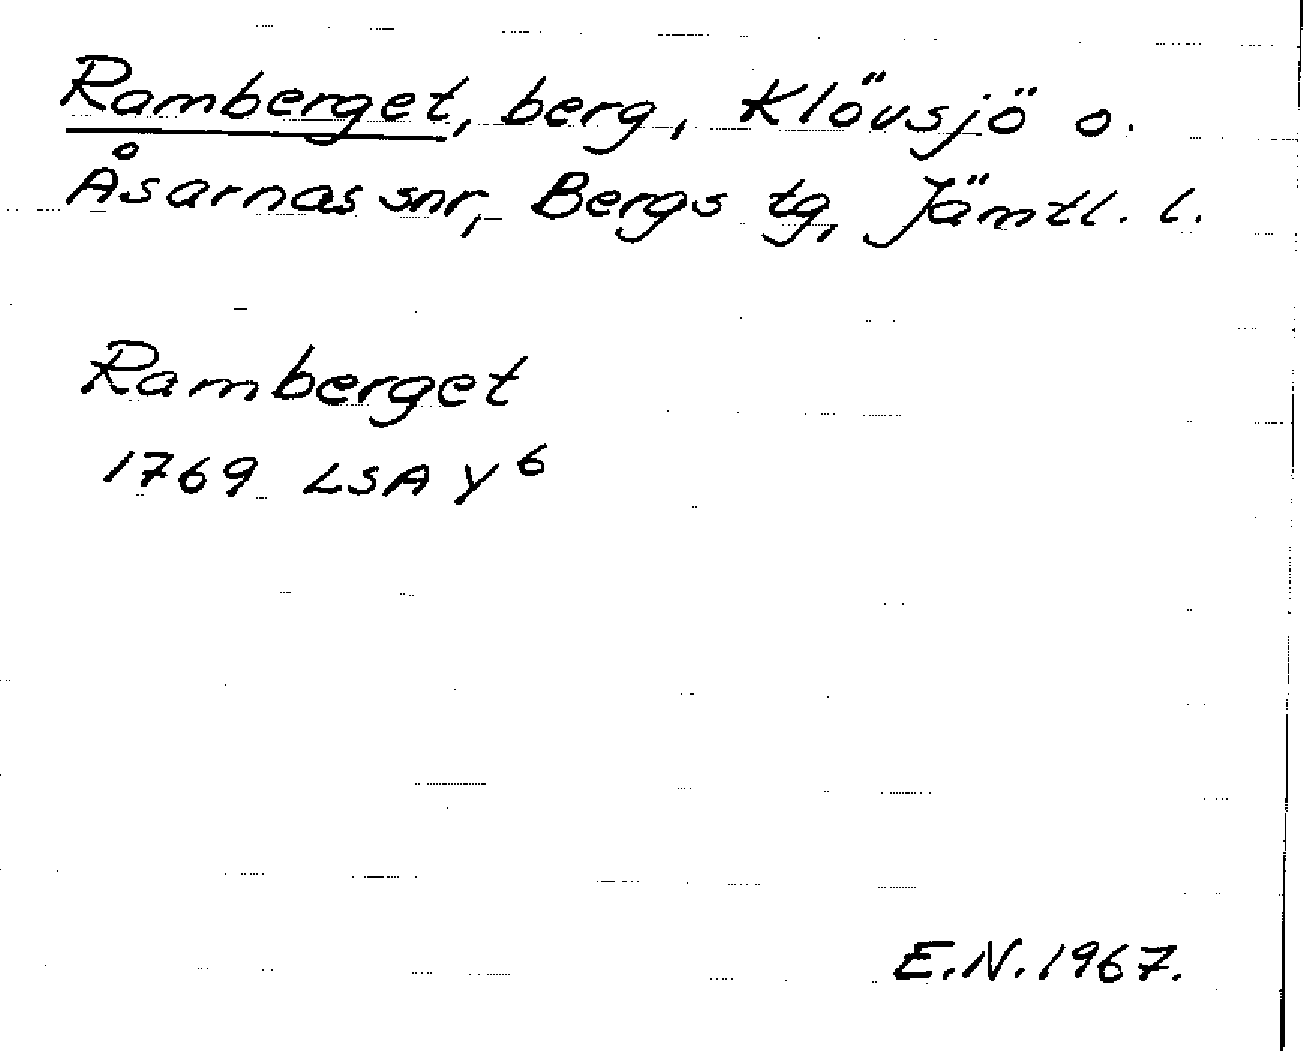 Ramberget, berg, Klövsjö o.
Åsarnas snr, Bergs tg, Jämtl. l.
Ramberget
1769 LSA Y⁶
E.N. 1967.